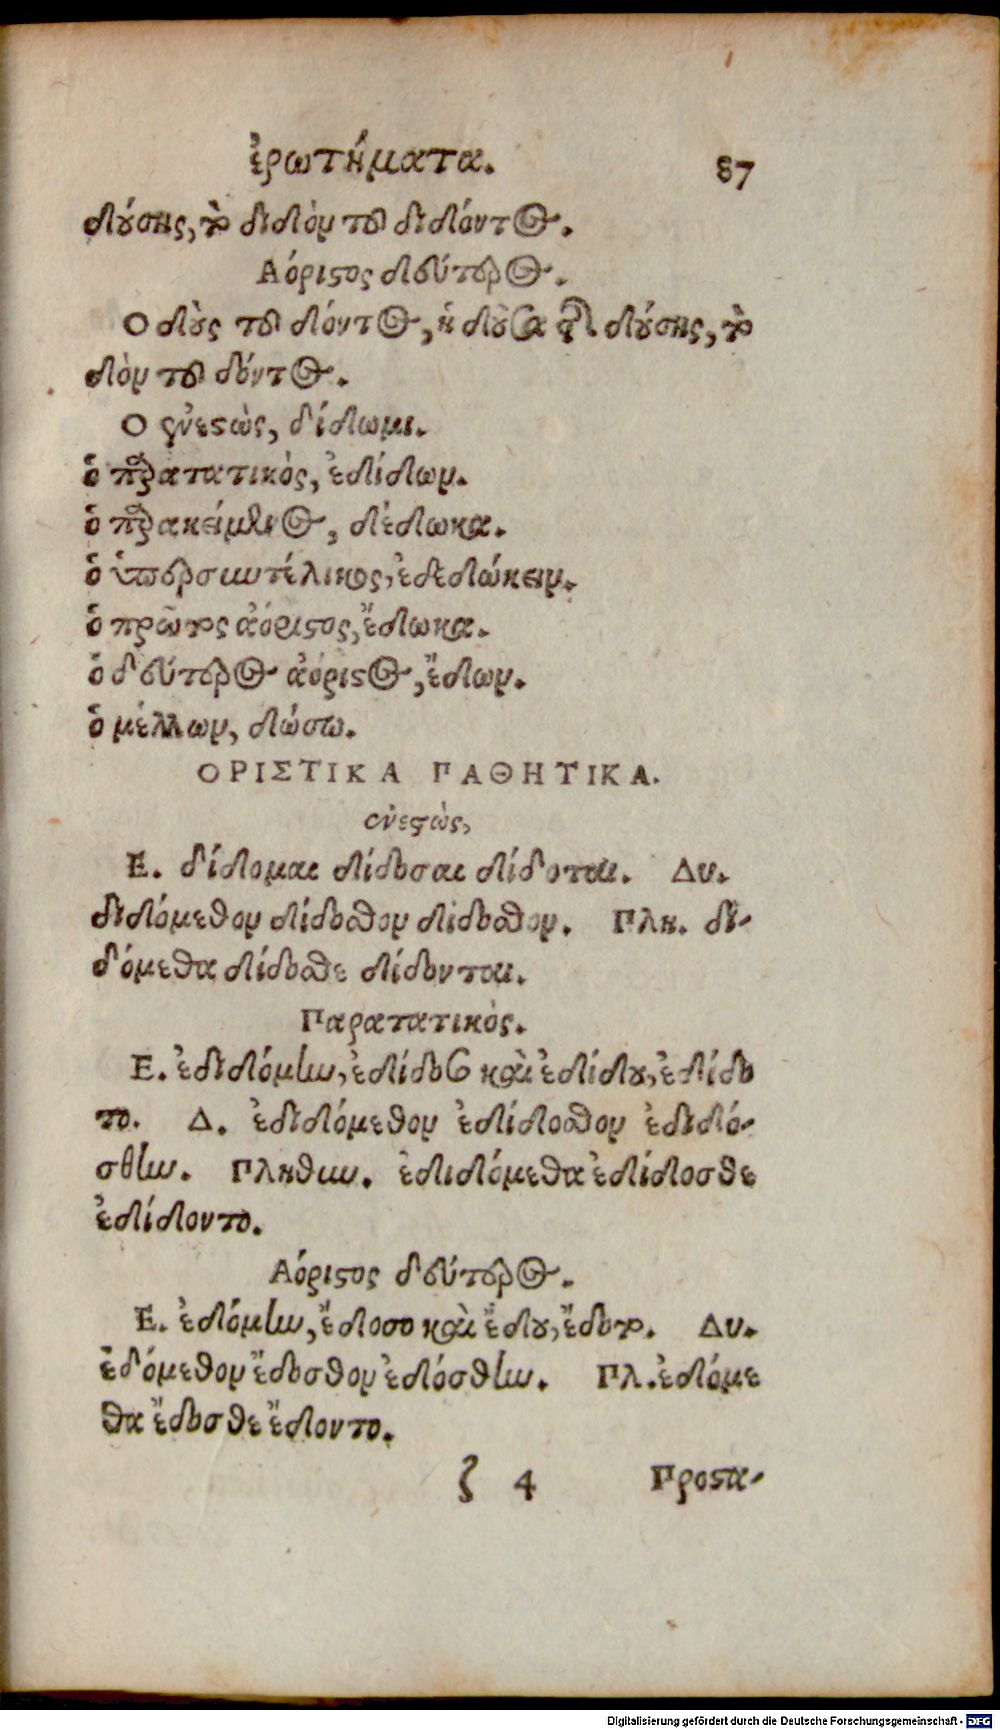 ἐρωτήματα. 87
δούσης, τὸ διδὸν τοῦ διδόντος.
Αόριστος δεύτερος.
Ο δοὺς τοῦ δόντος, ἡ δοῦσα τῆς δούσης, τὸ
δὸν τοῦ δόντος.
Ο ἐνεστὼς, δίδωμι.
ὁ παρατατικὸς, ἐδίδων.
ὁ παρακείμενος, δέδωκα.
ὁ ὑπερσυντέλικος, ἐδεδώκειν.
ὁ πρῶτος ἀόριστος, ἔδωκα.
ὁ δεύτερος ἀόριστος, ἔδων.
ὁ μέλλων, δώσω.
ΟΡΙΣΤΙΚΑ ΠΑΘΗΤΙΚΑ.
ἐνεστὼς,
Ε. δίδομαι δίδοσαι δίδοται. Δυ.
διδόμεθον δίδοσθον δίδοσθον. Πλη. δι-
δόμεθα δίδοσθε δίδονται.
Παρατατικός.
Ε. ἐδιδόμην, ἐδίδοσο καὶ ἐδίδου, ἐδίδο
το. Δ. ἐδιδόμεθον ἐδίδοσθον ἐδιδό-
σθην. Πληθυν. ἐδιδόμεθα ἐδίδοσθε
ἐδίδοντο.
Αόριστος δεύτερος.
Ε. ἐδόμην, ἔδοσο καὶ ἔδου, ἔδοτο. Δυ.
ἐδόμεθον ἔδοσθον ἐδόσθην. Πλ. ἐδόμε
θα ἔδοσθε ἔδοντο.
ζ 4 Προστα-
Digitalisierung gefördert durch die Deutsche Forschungsgemeinschaft - DFG